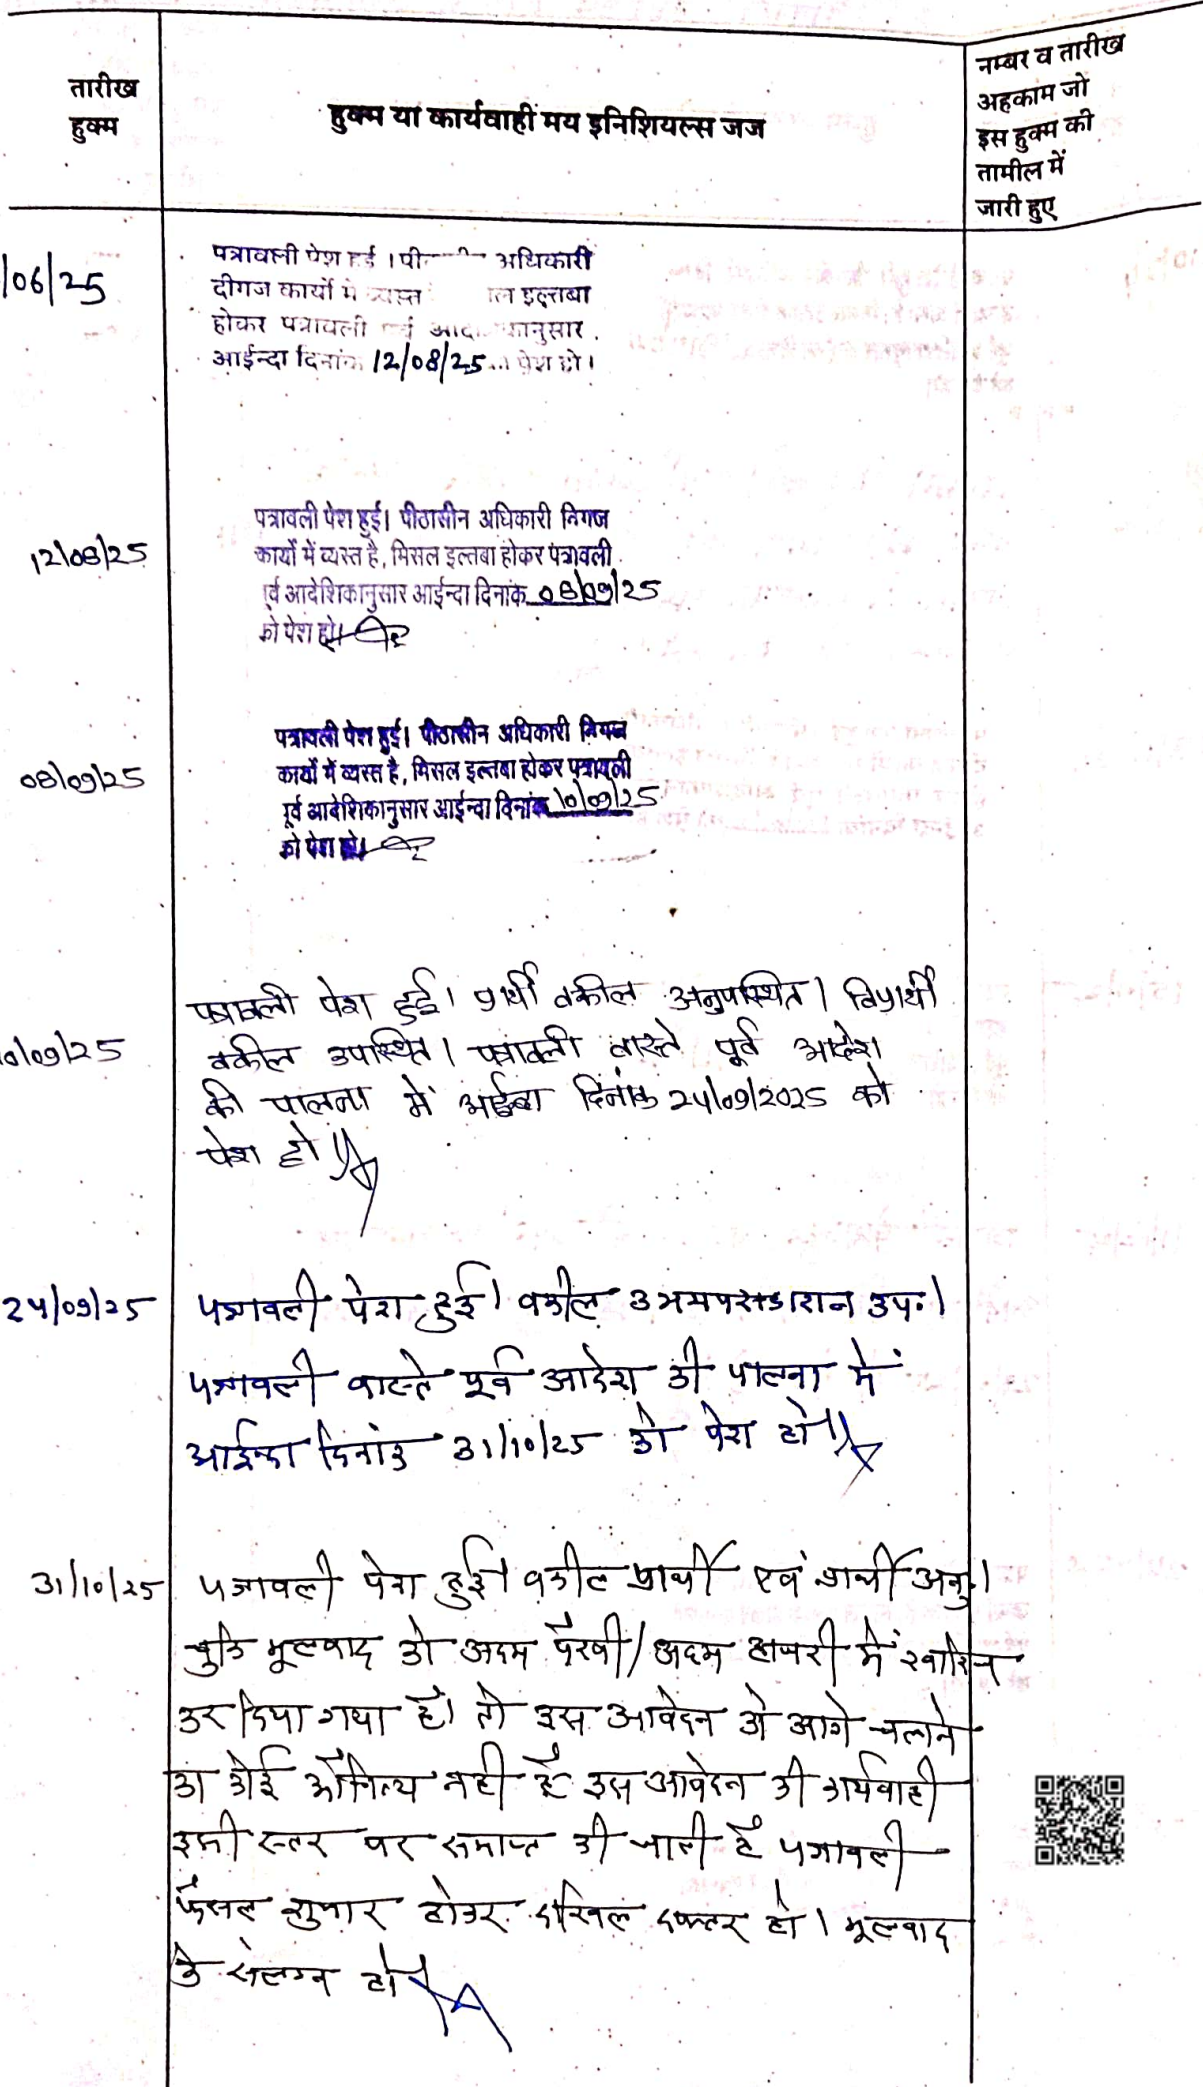 तारीख
हुक्म
हुक्म या कार्यवाही मय इनिशियल्स जज
नम्बर व तारीख
अहकाम जो
इस हुक्म की
तामील में
जारी हुए
/06/25
पत्रावली पेश हुई । अधिकारी
दीगज कार्यो मे व्यस्त इल्तबा
होकर पत्रावली
आईन्दा दिनांक 12/08/25 पेश हो।
12/08/25
पत्रावली पेश हुई। पीठासीन अधिकारी निगज
कार्यो में व्यस्त है, मिसल इल्तबा होकर पत्रावली
र्व आदेशिकानुसार आईन्दा दिनांक 08/09/25
को पेश हो।
08/09/25
पत्रावली पेश हुई। पीठासीन अधिकारी निगज
कार्यो में व्यस्त है, मिसल इल्तबा होकर पत्रावली
पूर्व आदेशिकानुसार आईन्दा दिनांक 10/09/25
को पेश हो।
0/09/25
पत्रावली पेश हुई। प्रार्थी वकील अनुपस्थित। विप्रार्थी
वकील उपस्थित। पत्रावली वास्ते पूर्व आदेश
की पालना में आईन्दा दिनांक 24/09/2025 को
पेश हो।
24/09/25
पत्रावली पेश हुई। वकील उभयपक्षकारान उप.।
पत्रावली वास्ते पूर्व आदेश की पालना में
आईन्दा दिनांक 31/10/25 को पेश हो।
31/10/25
पत्रावली पेश हुई। वकील प्रार्थी एवं प्रार्थी अनु.।
चुकि मूलवाद को अदम पैरवी/अदम हाजरी में खारिज
कर दिया गया है। तो इस आवेदन को आगे चलाने
का कोई औचित्य नही है इस आवेदन की कार्यवाही
इसी स्तर पर समाप्त की जाती है पत्रावली
फैसल शुमार होकर दाखिल दफ्तर हो। मूलवाद
के संलग्न हो।